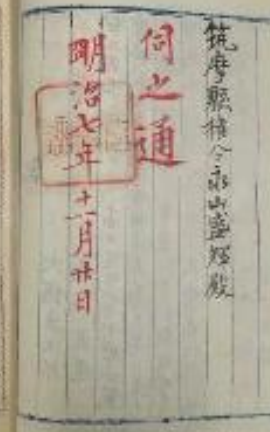 筑摩縣権令永山盛輝殿
伺之通
明治七年十一月廿日